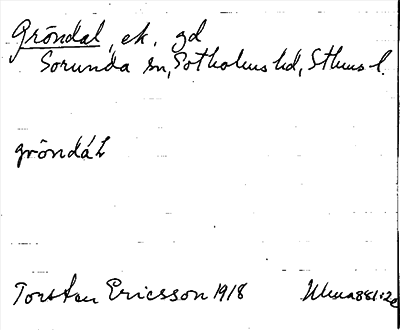 Gröndal, ek. gd
Sorunda sn, Sotholms hd, Sthms l.
gröndáL
Torsten Ericsson 1918